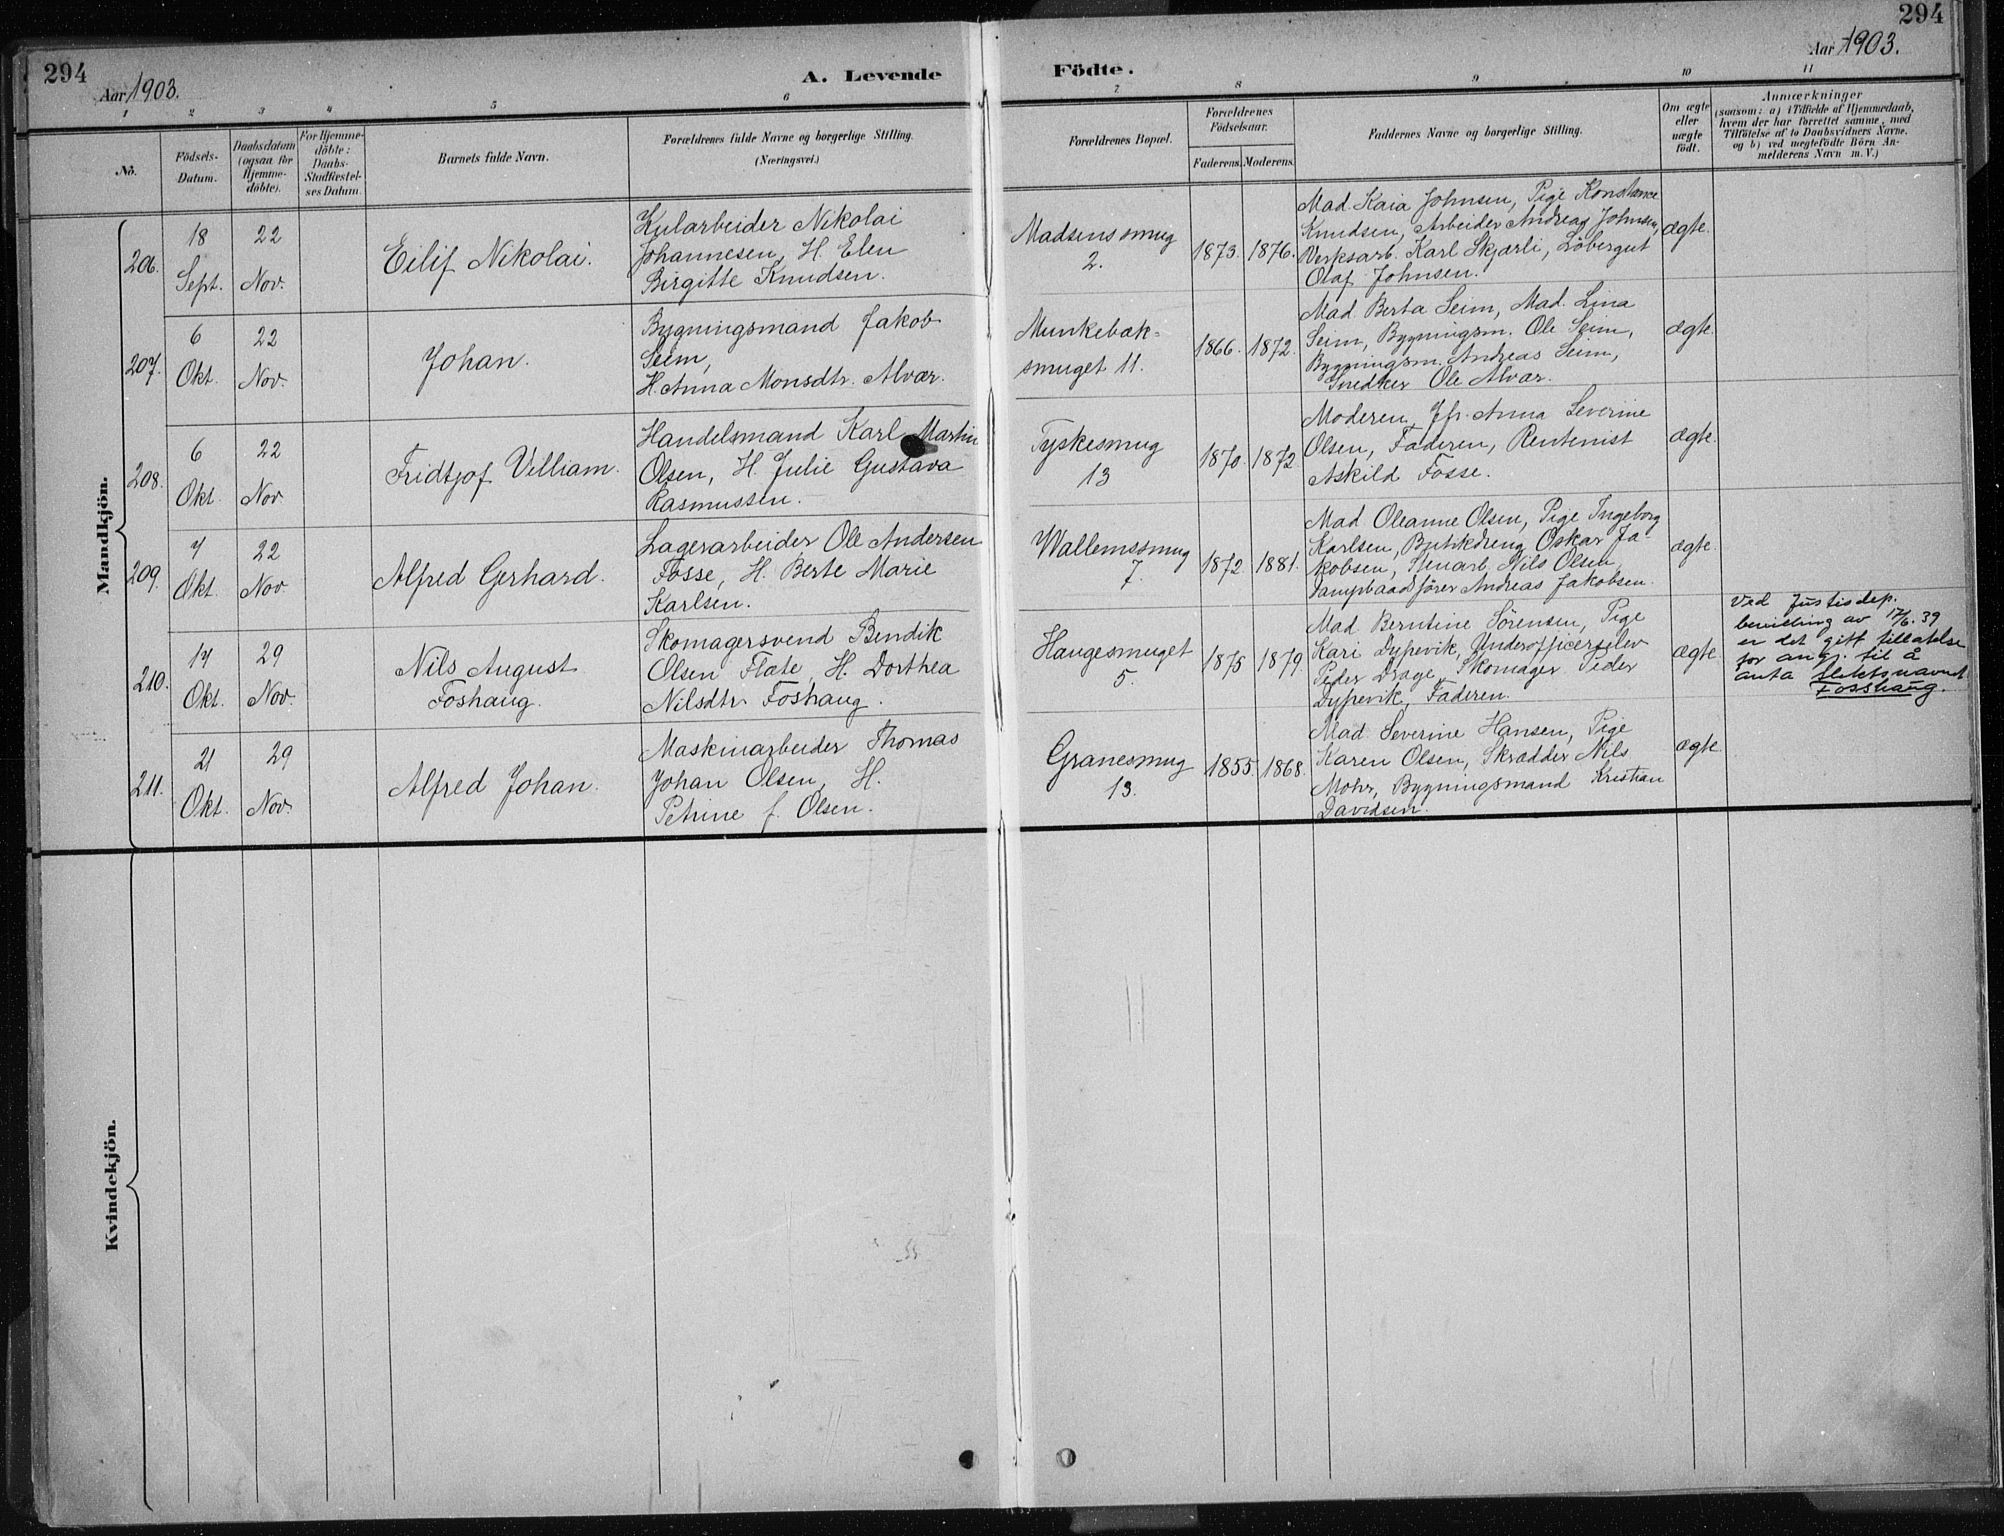 294
Aar 1903.
A. Levende
1
2
3
4
5
6
Nö.
Födsels-Datum.
Daabsdatum (ogsaa for Hjemme-döbte).
For Hjemme-döbte: Daabs-Stadfæstel-ses Datum.
Barnets fulde Navn.
Forældrenes fulde Navne og borgerlige Stilling.
(Næringsvei.)
Mandkjön.
206.
18 Sept.
22 Nov.
Eilif Nikolai.
Kularbeider Nikolai
Johannesen, H. Elen
Birgitte Knudsen.
207.
6 Okt.
22 Nov.
Johan.
Bygningsmand Jakob
Seim,
H. Anna Monsdtr. Alvær.
208.
6 Okt.
22 Nov
Fridtjof Villiam.
Handelsmand Karl Martin
Olsen, H. Julie Gustava
Rasmussen.
209.
7 Okt.
22 Nov.
Alfred Gerhard.
Lagerarbeider Ole Andersen
Fosse, H. Berte Marie
Karlsen.
210.
17 Okt.
29 Nov.
Nils August
Foshaug.
Skomagersvend Bendik
Olsen Flate, H. Dorthea
Nilsdtr Foshaug.
211.
21 Okt.
29 Nov.
Alfred Johan.
Maskinarbeider Thomas
Johan Olsen, H.
Petrine f. Olsen.
Kvindekjön.
294
Aar 1903.
Födte.
7
8
9
10
11
Forældrenes Bopæl.
Forældrenes Födselsaar.
Faderens.
Moderens.
Faddernes Navne og borgerlige Stilling.
Om ægte eller uægte født.
Anmærkninger
(saasom: a) i Tilfælde af Hjemmedaab,
hvem der har forrettet samme, med
Tilföielse af to Daabsvidners Navne.
og b) ved uægtefödte Börn An-
melderens Navn m. V.)
Madsenssmug
2.
1873.
1876.
Mad. Kaia Johnsen, Pige Konstance
Knudsen, Arbeider Andreas Johnsen,
Verksarb. Karl Skjærli, Löbergut
Olaf Johnsen.
ægte.
Munkebæk-
smuget 11.
1866.
1872.
Mad. Berta Seim, Mad. Lina
Seim, Bygningsm. Ole Seim,
Bygningsm. Andreas Seim,
Snedker Ole Alvær.
ægte.
Tyskesmug
13
1870.
1872
Moderen, Jfr. Anna Severine
Olsen, Faderen, Rentenist
Askild Fosse.
ægte.
Wallemssmug
7.
1872
1881.
Mad Oleanne Olsen, Pige Ingeborg
Karlsen, Butikdreng Oskar Ja-
kobsen, Stenarb. Nils Olsen,
Dampbaadsförer Andreas Jakobsen.
ægte.
Haugesmuget
5.
1875
1879.
Mad. Berntine Sörensen, Pige
Kari Dypevik, Underofficerselev
Peder Drage, Skomager Peder
Dypevik, Faderen.
ægte.
Ved Justisdep.
bevilling av 17/6. 39
er det gitt tillatelse
for ang. til å
anta slektsnavnet
Fosshaug.
Granesmug
13.
1855.
1868.
Mad Severine Hansen, Pige
Karen Olsen, Skrædder Nils
Mohr, Bygningsmand Kristian
Davidsen.
ægte.